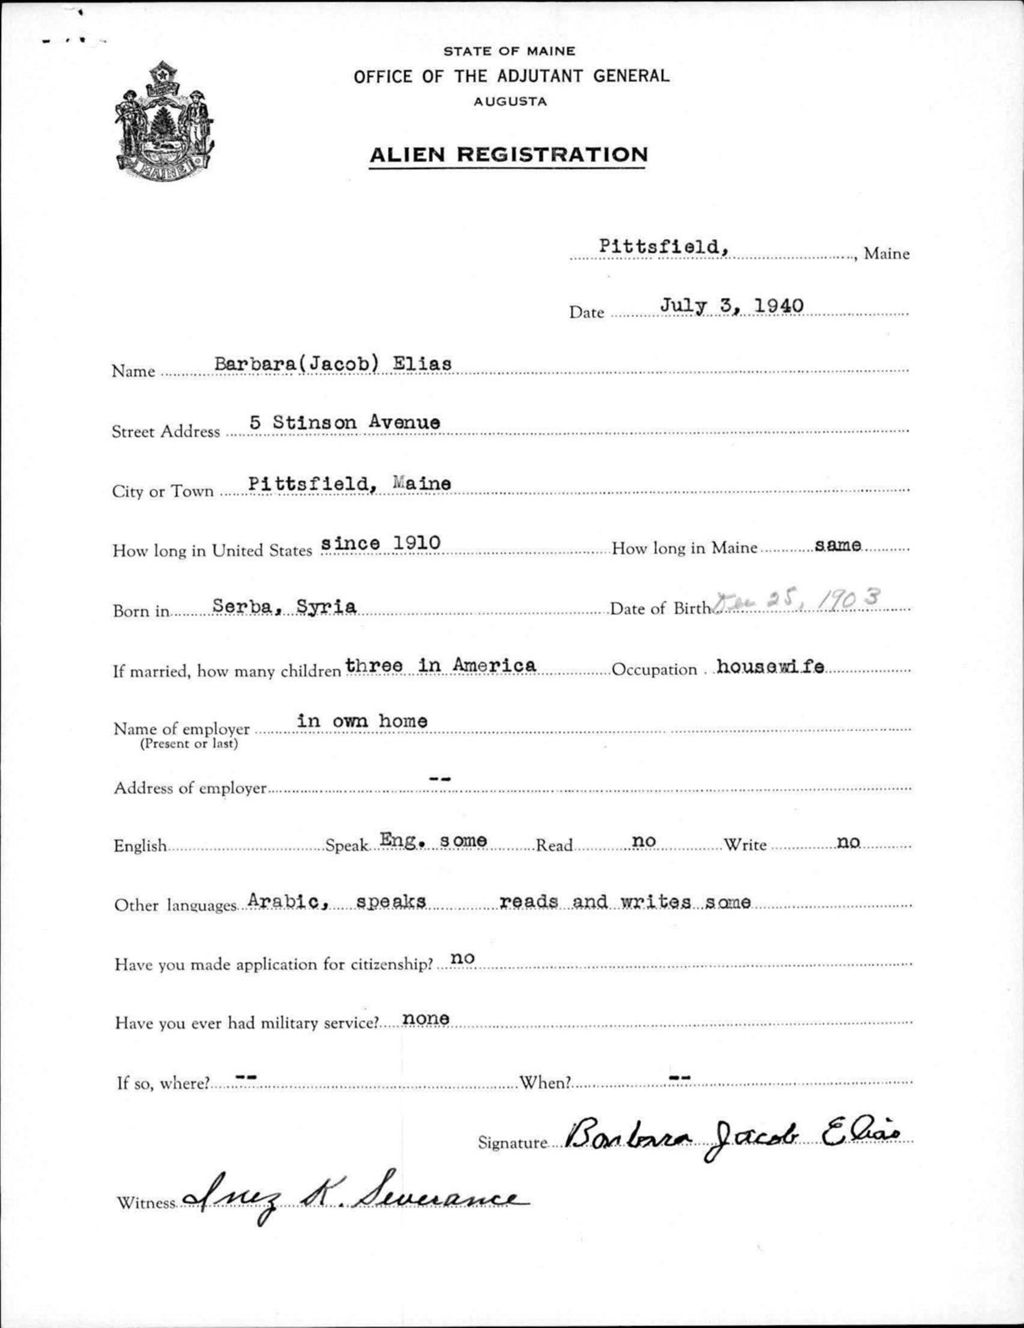 STATE OF MAINE
OFFICE OF THE ADJUTANT GENERAL
AUGUSTA
ALIEN REGISTRATION
MAINE
Pittsfield, , Maine
Date July 3, 1940
Name Barbara(Jacob) Elias
Street Address 5 Stinson Avenue
City or Town Pittsfield, Maine
How long in United States since 1910 How long in Maine same
Born in Serba, Syria Date of Birth Dec 25, 1903
If married, how many children three in America Occupation housewife
Name of employer in own home
(Present or last)
Address of employer --
English Speak Eng. some Read no Write no
Other languages Arabic, speaks reads and writes some
Have you made application for citizenship? no
Have you ever had military service? none
If so, where? -- When? --
Signature Barbara Jacob Elias
Witness Inez K. Severance